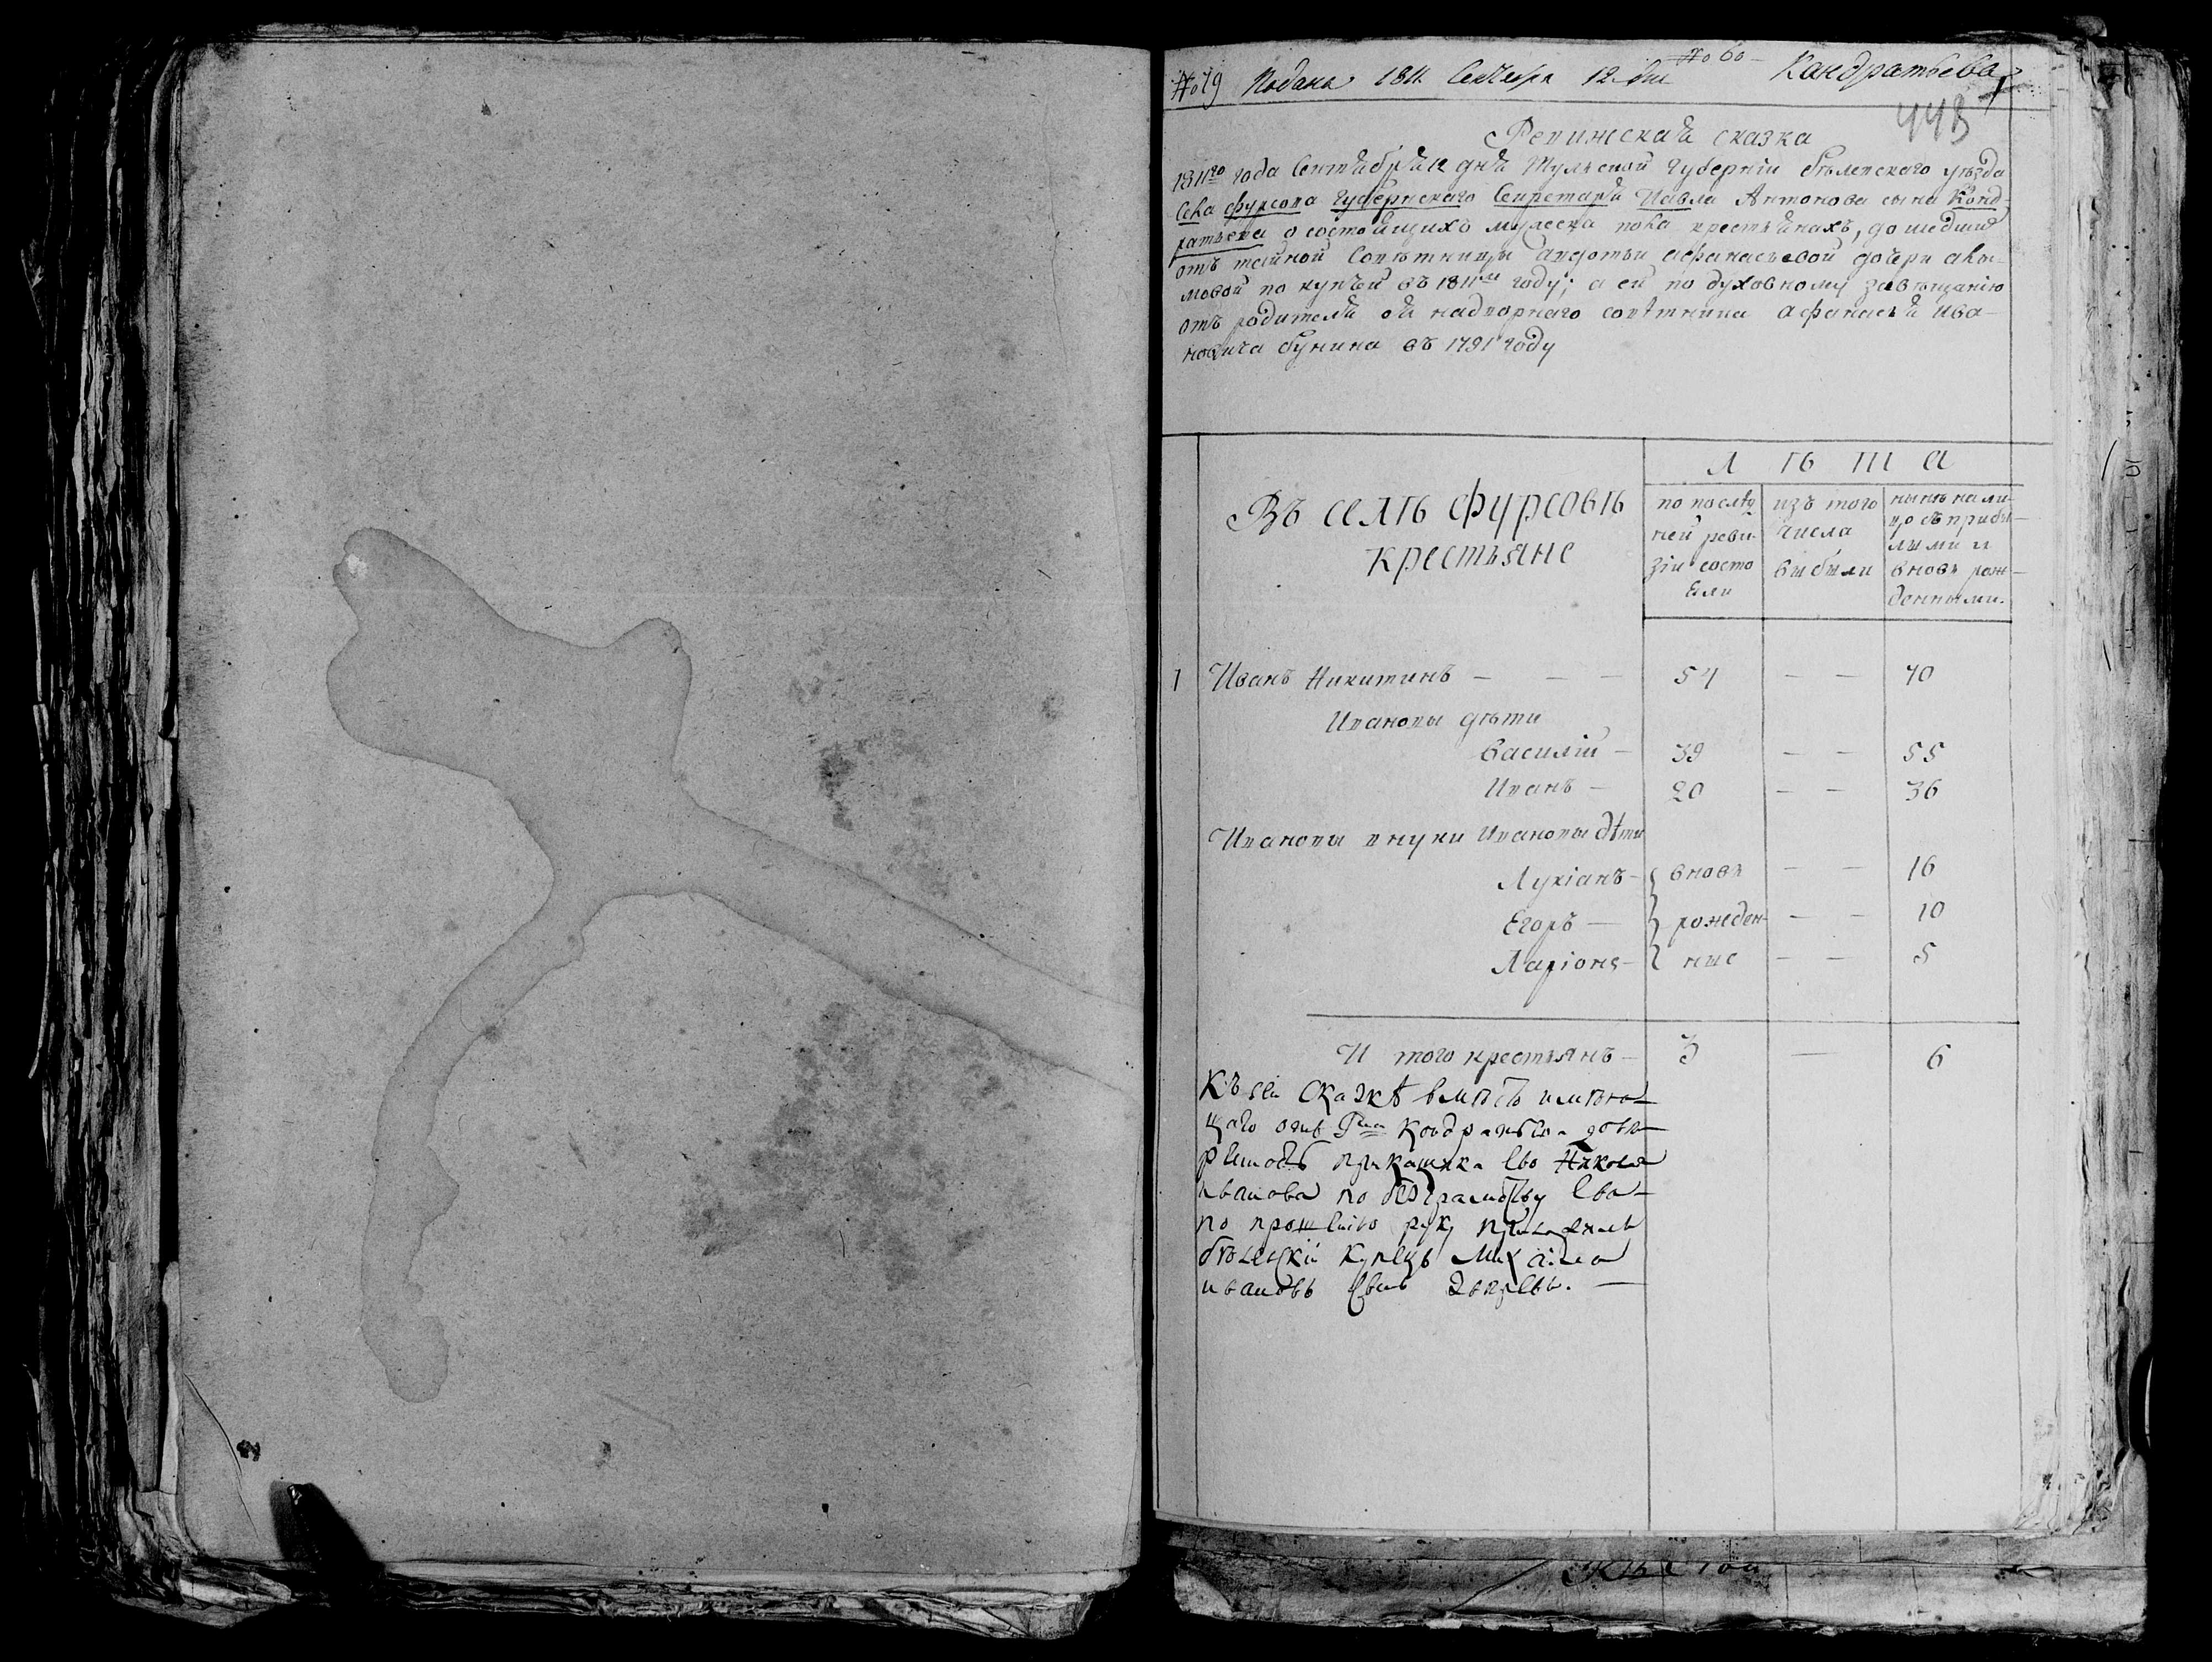 № 60
№ 79 Подана 1811 Сентебря 12 дня Кандратьева
443
Ревижская сказка
1811го года Сентября 12 дня Тульской Губерніи Бѣлевского уѣзда
села фурсова Губернскаго Секретаря Павла Антонова сына Конд-
ратьева о состоящихъ мужеска пола крестьянахъ, дошедшие
отъ тайной Совѣтницы авдотьи афанасьевой дочери ала-
мовой по купчей въ 1811м году; а ей по духовному завещанію
отъ родителя ея надворнаго совѣтника афанасья ива-
новича бунина въ 1791 году
Л Ѣ Т А
Въ селѣ фурсовѣ
крестьяне
по послѣд
ней реви
зіи состо
яли
изъ того
числа
выбыли
нынѣ нали-
цо съ прибы-
лыми и
вновь рож-
денными.
1 Иванъ Никитинъ — — — 54 — — 70
Ивановы дѣти
Василій — 39 — — 55
Иванъ — 20 — — 36
Ивановы внуки Ивановы дѣти
Лукіанъ — вновь — — 16
Егоръ — рожден- — — 10
Ларіонъ — ные — — 5
И того крестьянъ — 3 — 6
Къ сей сказкѣ вмѣсто имѣю-
щаго отъ Гна Кондратьева довѣ-
ренность прикащика ево Николая
иванова по безграмотству ево
по прошенію руку приложилъ
бѣлевскій купецъ Михайла
ивановъ сынъ